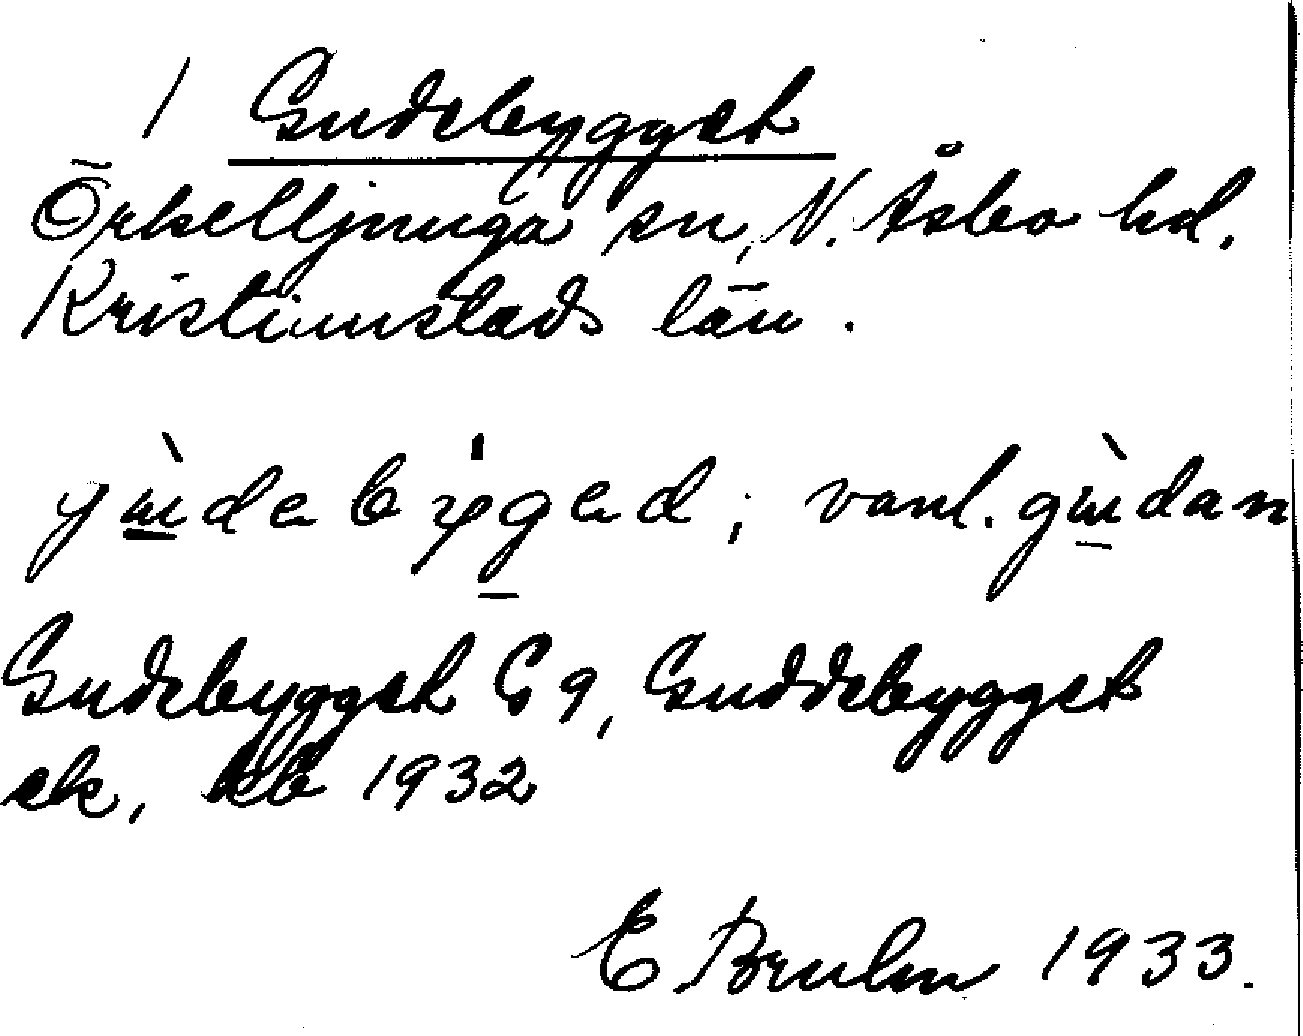 1 Gudebygget
Örkelljunga sn, N. Åsbo hd.
Kristianstads län.
gùdebýged; vanl. gùdan
Gudebygget G9, Guddebygget
ek, kb 1932
E Bruhn 1933.